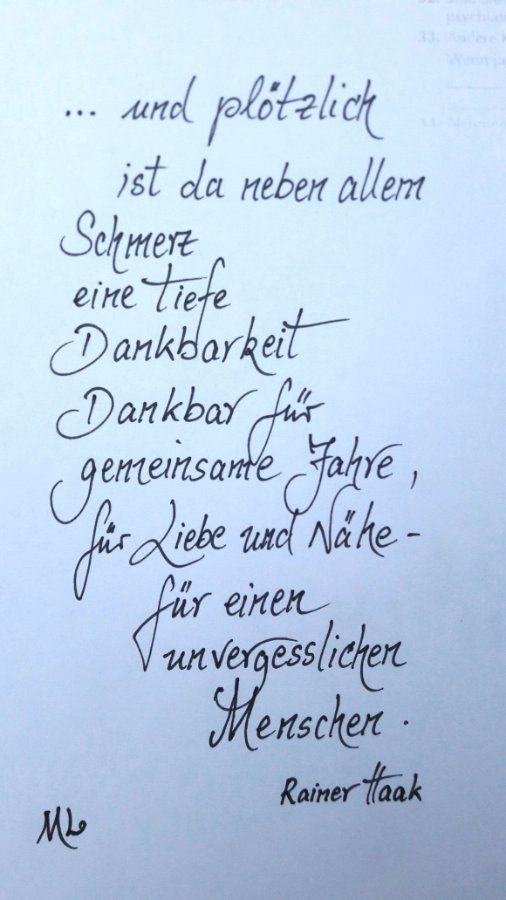 ... und plötzlich
ist da neben allem
Schmerz
eine tiefe
Dankbarkeit
Dankbar für
gemeinsame Jahre,
für Liebe und Nähe -
für einen
unvergesslichen
Menschen.
Rainer Haak
ML
33. Andere
Wenn ja